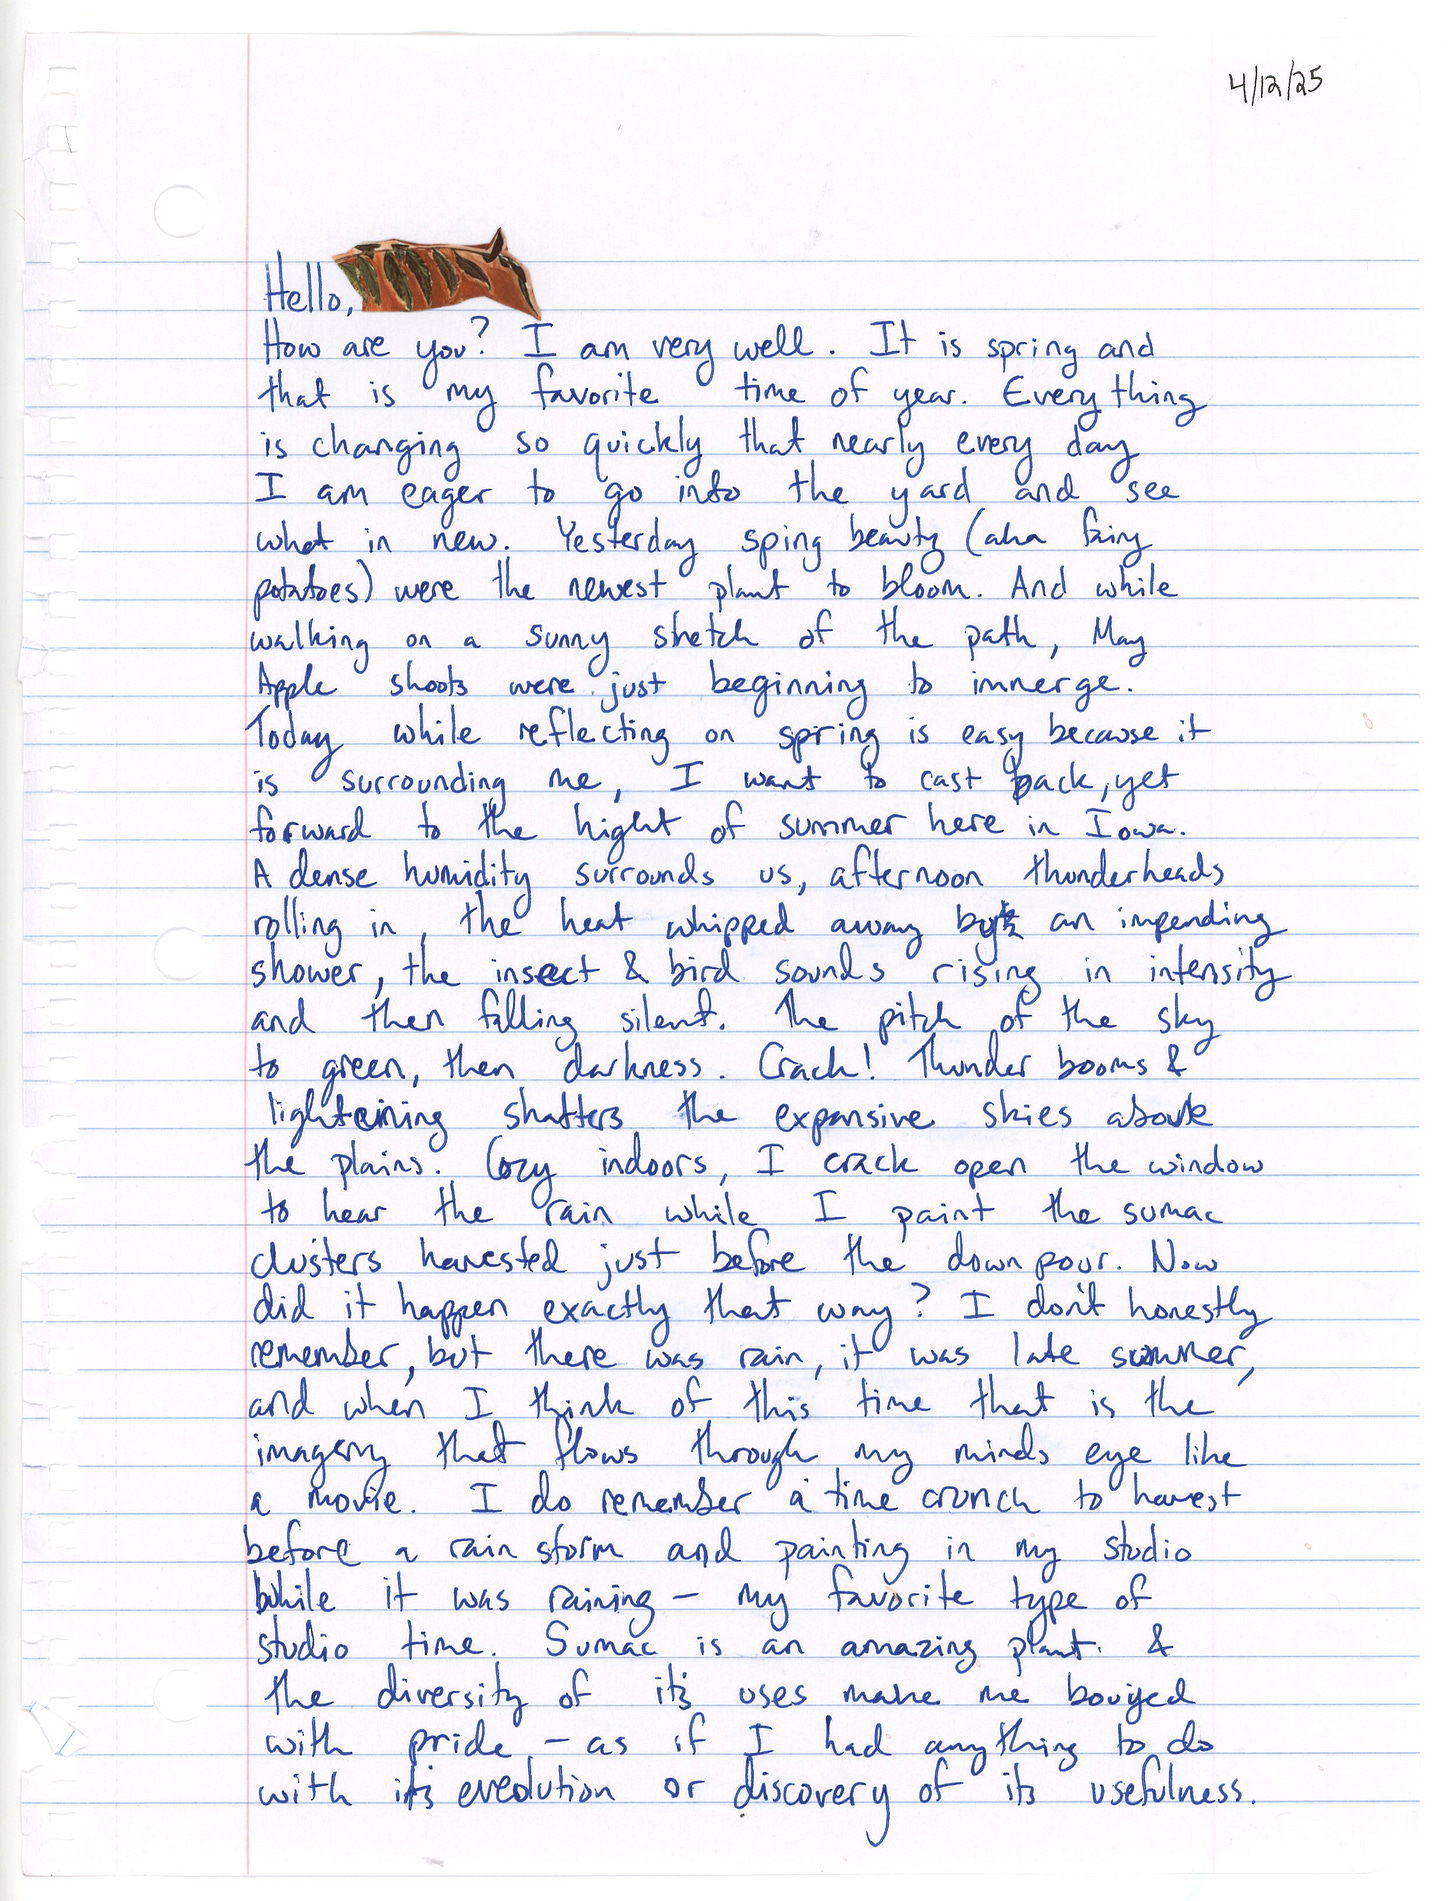 4/12/25
Hello,
How are you? I am very well. It is spring and
that is my favorite time of year. Everything
is changing so quickly that nearly every day
I am eager to go into the yard and see
what in new. Yesterday sping beauty (aka fairy
potatoes) were the newest plant to bloom. And while
walking on a sunny stretch of the path, May
Apple shoots were just beginning to immerge.
Today while reflecting on spring is easy because it
is surrounding me, I want to cast back, yet
forward to the hight of summer here in Iowa.
A dense humidity surrounds us, afternoon thunderheads
rolling in, the heat whipped away by an impending
shower, the insect & bird sounds rising in intensity
and then falling silent. The pitch of the sky
to green, then darkness. Crack! Thunder booms &
lightening shatters the expansive skies above
the plains. Cozy indoors, I crack open the window
to hear the rain while I paint the sumac
clusters harvested just before the downpour. Now
did it happen exactly that way? I don't honestly
remember, but there was rain, it was late summer,
and when I think of this time that is the
imagery that flows through my minds eye like
a movie. I do remember a time crunch to harvest
before a rain storm and painting in my studio
while it was raining - my favorite type of
studio time. Sumac is an amazing plant. &
the diversity of it's uses make me bouyed
with pride - as if I had anything to do
with it's evolution or discovery of its usefulness.